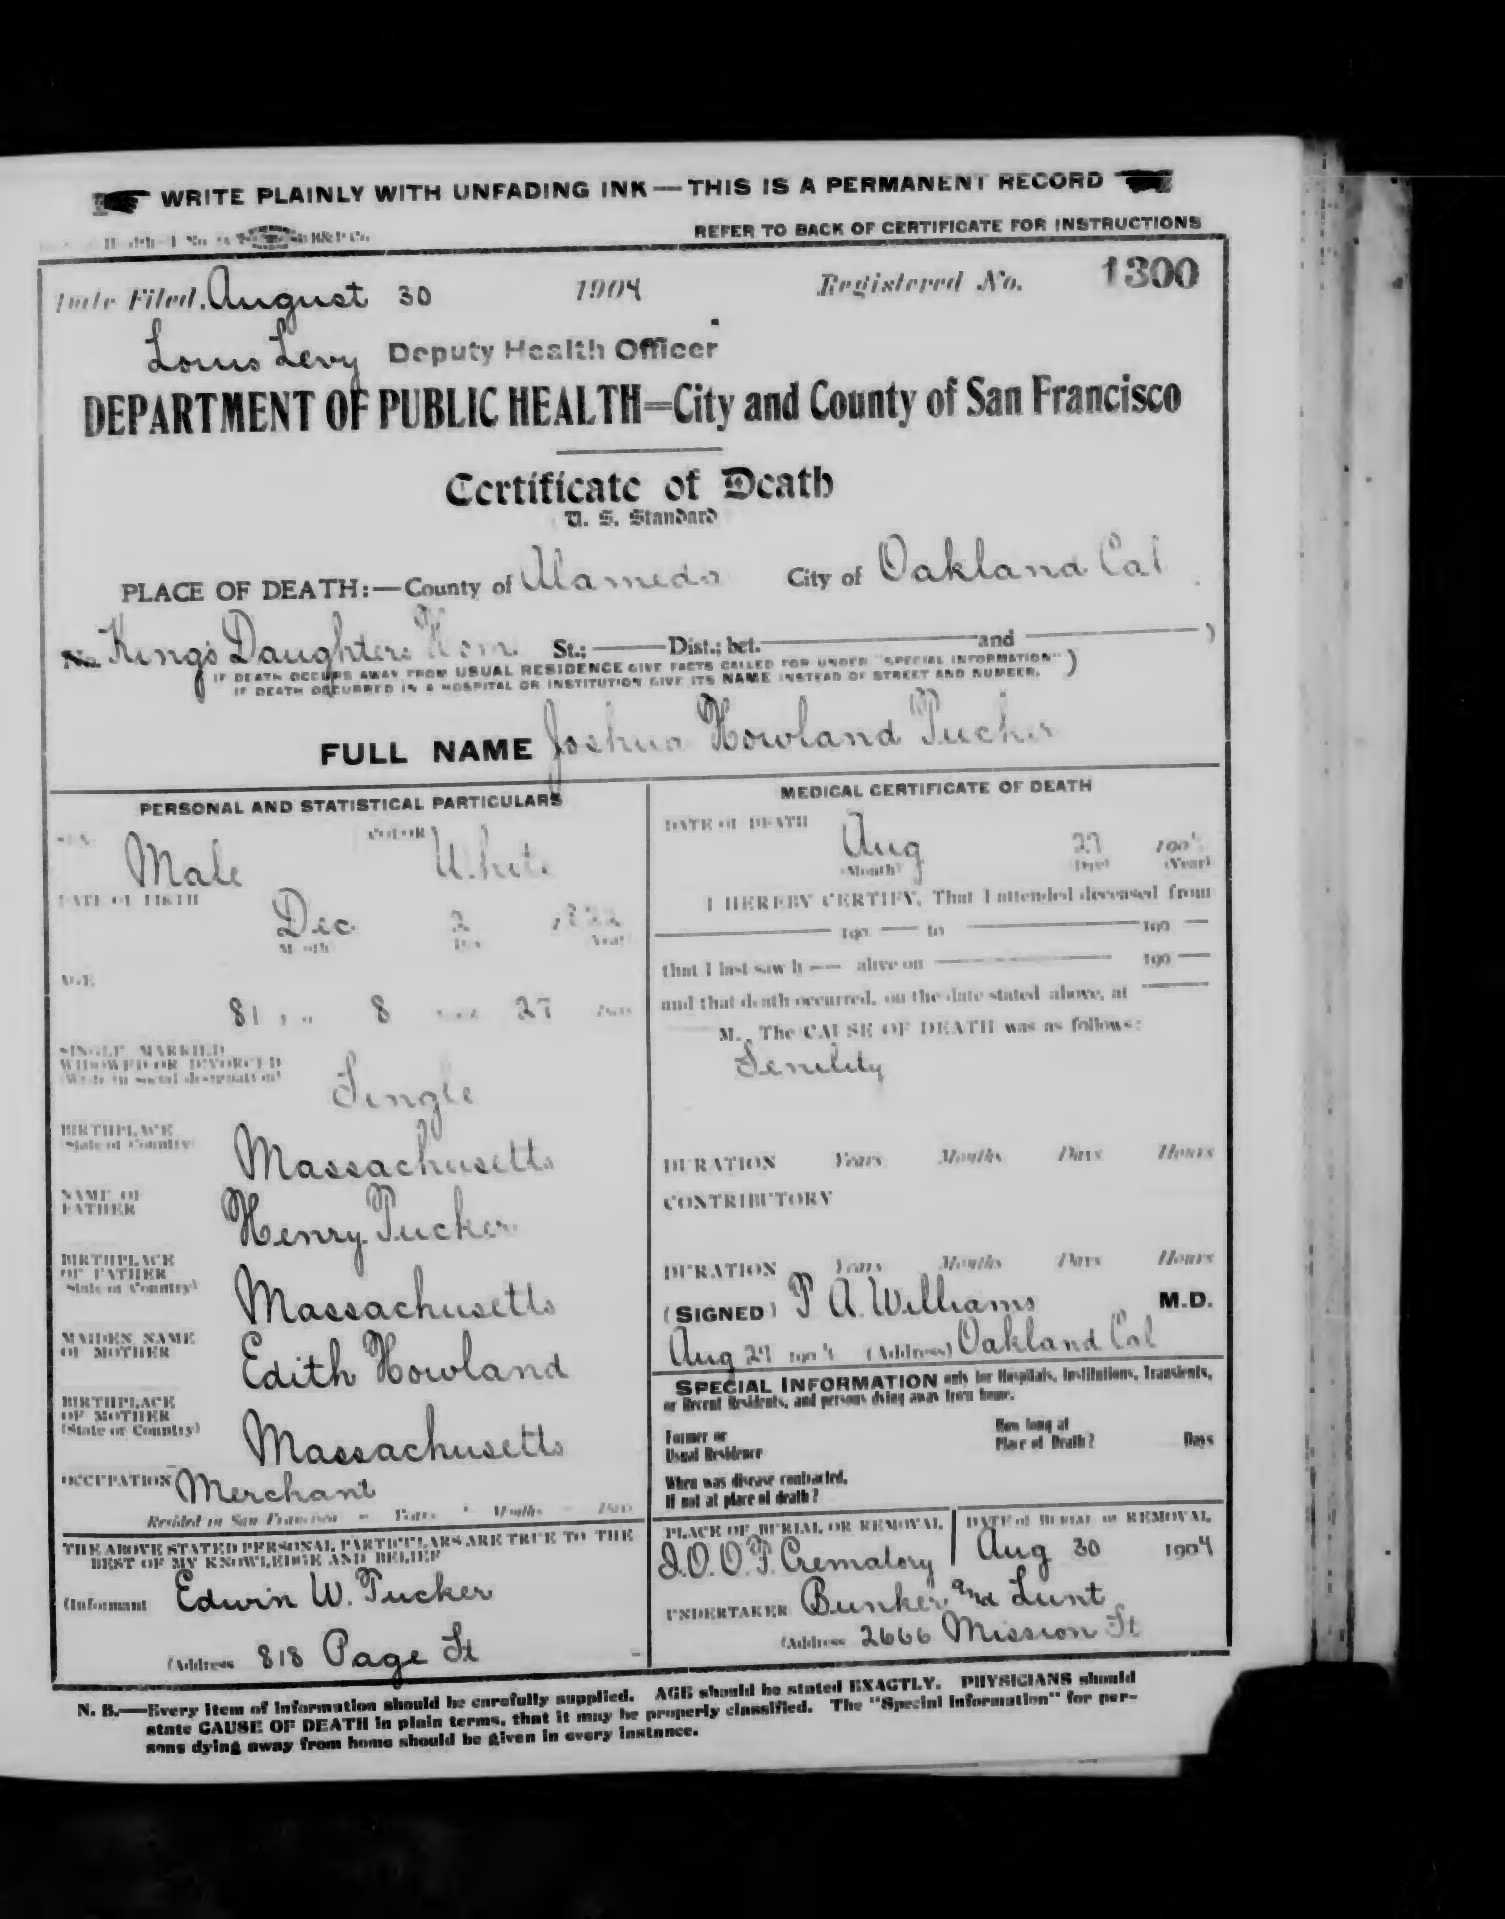 WRITE PLAINLY WITH UNFADING INK — THIS IS A PERMANENT RECORD
REFER TO BACK OF CERTIFICATE FOR INSTRUCTIONS
Date Filed, August 30 1904 Registered No. 1300
Louis Levy Deputy Health Officer
DEPARTMENT OF PUBLIC HEALTH=City and County of San Francisco
Certificate of Death
U. S. Standard
PLACE OF DEATH:—County of Alameda City of Oakland Cal
No. King's Daughters Home St.; Dist.; bet. and )
IF DEATH OCCURS AWAY FROM USUAL RESIDENCE GIVE FACTS CALLED FOR UNDER "SPECIAL INFORMATION" )
IF DEATH OCCURRED IN A HOSPITAL OR INSTITUTION GIVE ITS NAME INSTEAD OF STREET AND NUMBER.
FULL NAME Joshua Howland Tucker
PERSONAL AND STATISTICAL PARTICULARS
SEX Male COLOR White
DATE OF BIRTH Dec 2 1822
Month Day Year
AGE
81 8 27 Days
SINGLE, MARRIED
WIDOWED OR DIVORCED
(Write in social designation) Single
BIRTHPLACE
State or Country Massachusetts
NAME OF
FATHER Henry Tucker
BIRTHPLACE
OF FATHER
State or Country) Massachusetts
MAIDEN NAME
OF MOTHER Edith Howland
BIRTHPLACE
OF MOTHER
(State or Country) Massachusetts
OCCUPATION Merchant
Resided in San Francisco Years Months Days
THE ABOVE STATED PERSONAL PARTICULARS ARE TRUE TO THE
BEST OF MY KNOWLEDGE AND BELIEF
(Informant Edwin W. Tucker
(Address 818 Page St
MEDICAL CERTIFICATE OF DEATH
DATE OF DEATH
Aug 29 1904
(Month) (Day) (Year)
I HEREBY CERTIFY, That I attended deceased from
190 to 190
that I last saw h alive on 190
and that death occurred, on the date stated above, at
M. The CAUSE OF DEATH was as follows:
Senility
DURATION Years Months Days Hours
CONTRIBUTORY
DURATION Years Months Days Hours
(SIGNED) P A. Williams M.D.
Aug 29 1904 (Address) Oakland Cal
SPECIAL INFORMATION only for Hospitals, Institutions, Transients,
or Recent Residents, and persons dying away from home.
Former or
Usual Residence
How long at
Place of Death? Days
When was disease contracted,
If not at place of death?
PLACE OF BURIAL OR REMOVAL
I.O.O.F. Crematory
DATE of BURIAL or REMOVAL
Aug 30 1904
UNDERTAKER Bunker and Lunt
(Address 2666 Mission St
N. B.—Every item of information should be carefully supplied. AGE should be stated EXACTLY. PHYSICIANS should
state CAUSE OF DEATH in plain terms, that it may be properly classified. The "Special Information" for per-
sons dying away from home should be given in every instance.